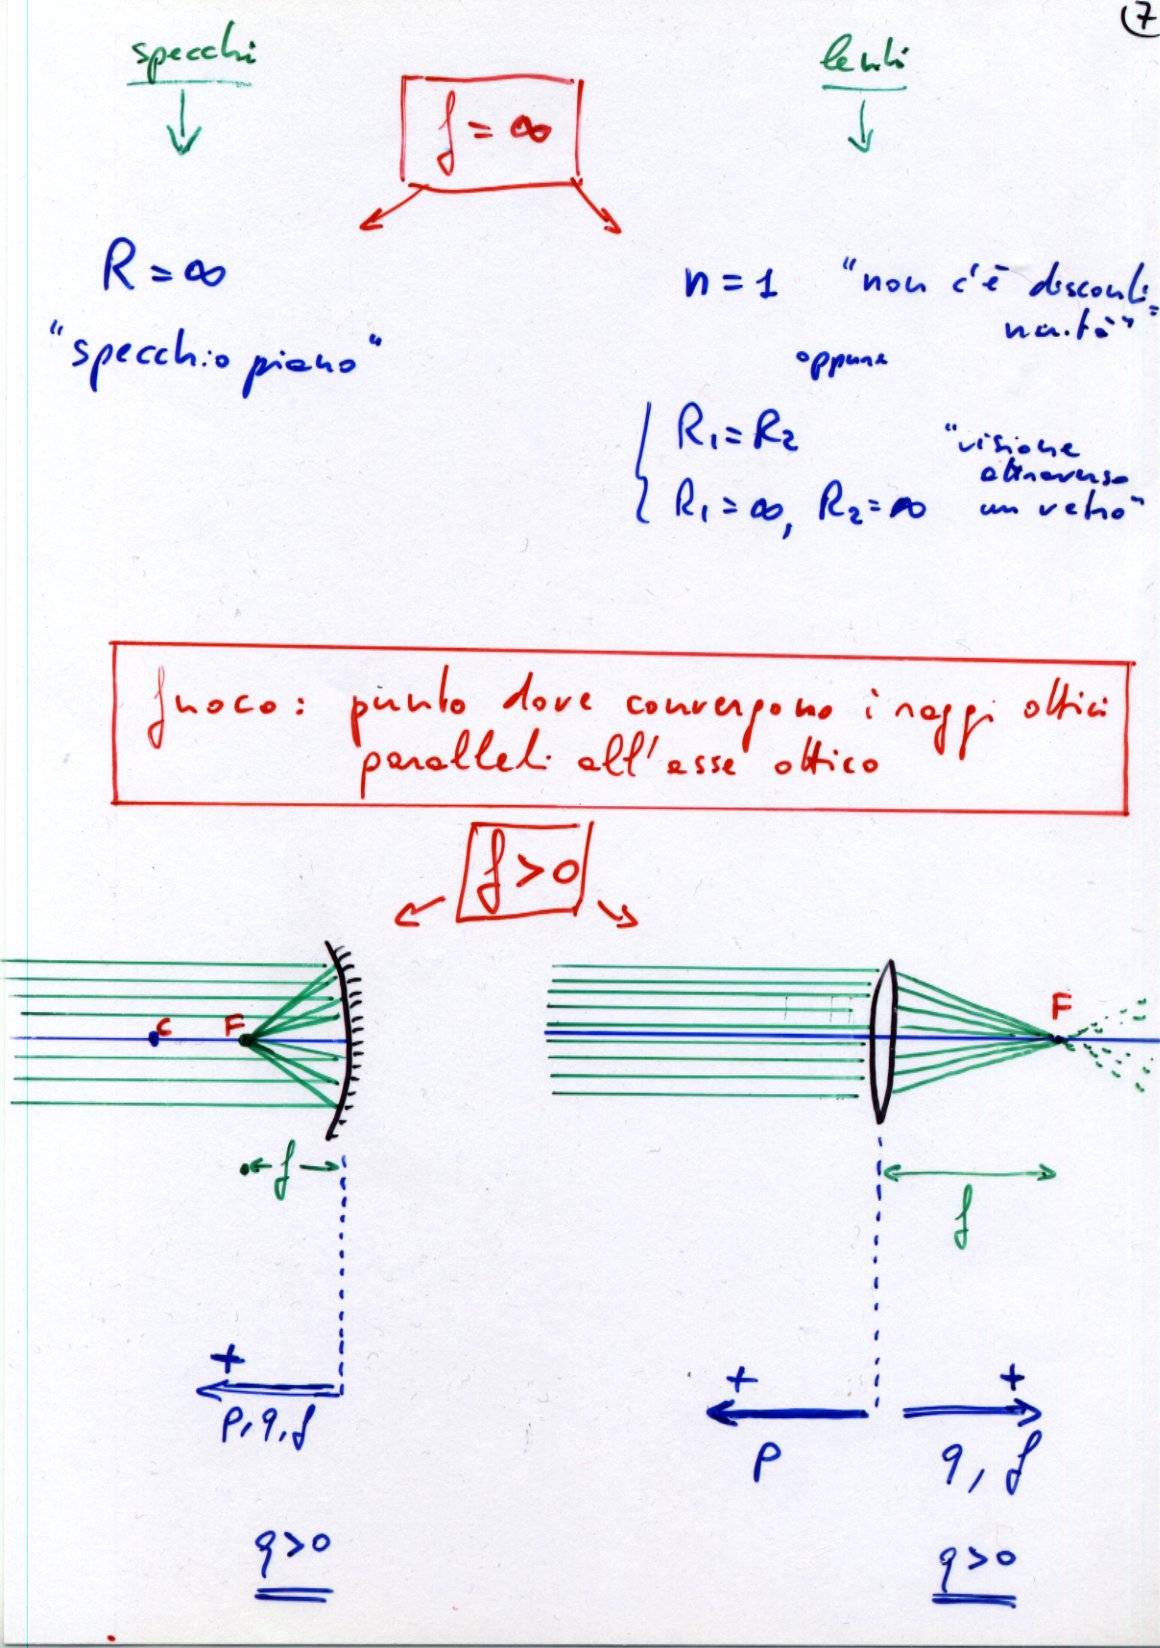 7
specchi
lenti
f = ∞
R = ∞
"specchio piano"
n = 1 "non c'è disconti=
nuità"
oppure
R1 = R2
R1 = ∞, R2 = ∞
"visione
attraverso
un vetro"
fuoco: punto dove convergono i raggi ottici
paralleli all'asse ottico
f > 0
C F
F
f
f
+
p, q, f
+
p
+
q, f
q > 0
q > 0